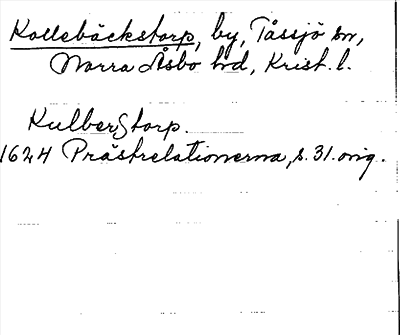 Kollebäckstorp, by, Tåssjö sn,
Norra Åsbo hd, Krist. l.
KulberStorp.
1624 Prästrelationerna, s. 31. orig.